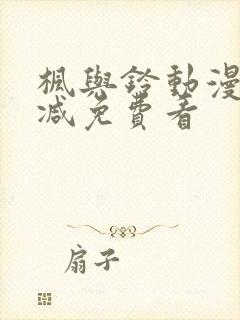 楓與鈴動漫
減免費看
扇子